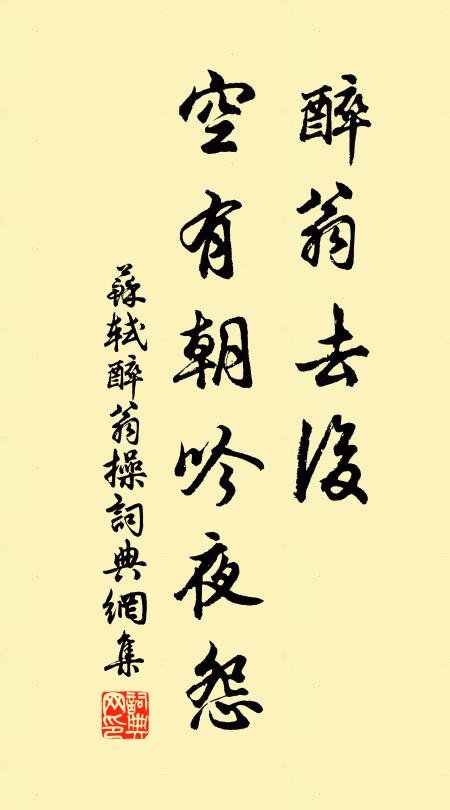 醉翁去後
空有朝吟夜怨
蘇軾醉翁操詞典網集
詞典网印